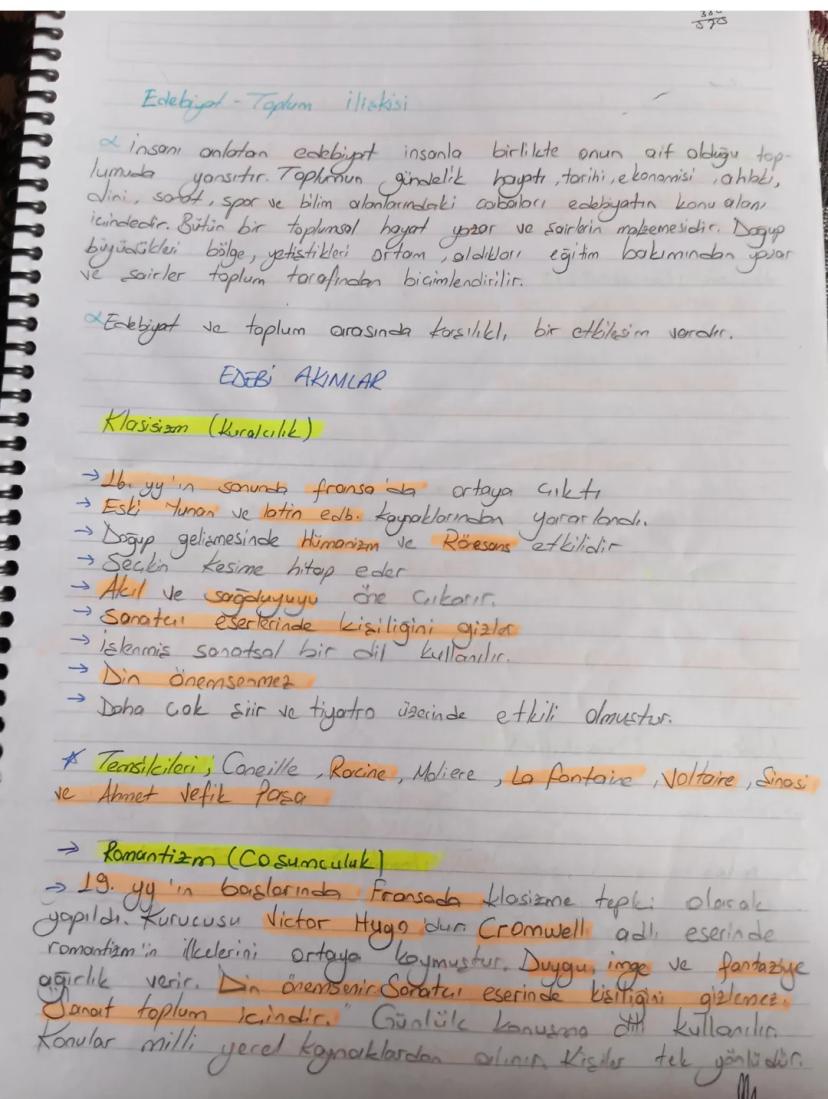 575
Edebiyat - Toplum iliskisi
insanı anlatan edebiyat insanla birlikte onun ait olduğu top-
lumuda yansıtır. Toplumun gündelik hayatı, tarihi, ekonomisi, ahlakı,
dini, sanat, spor ve bilim alanlarındaki cabaları edebiyatın konu alanı
icindedir. Bütün bir toplumsal hayat yazar ve sairlerin malzemesidir. Dogup
büyüdükleri bölge, yetistikleri ortam, aldıkları eğitim bakımından yazar
ve sairler toplum tarafından bicimlendirilir.
Edebiyat ve toplum arasında karsılıklı bir etkilesim vardır.
EDEBİ AKIMLAR
Klasisizm (Kuralcılık)
→ 16. yy'ın sonunda fransa'da ortaya cıktı
→ Eski Yunan ve latin edb. kaynaklarından yararlandı.
→ Dogup gelismesinde Hümanizm ve Rönesans etkilidir
→ Seckin kesime hitap eder
→ Akıl ve sağduyuyu öne cıkarır.
→ Sanatcı eserlerinde kisiliğini gizler
→ islenmis sanatsal bir dil kullanılır.
→ Din önemsenmez
→ Daha cok siir ve tiyatro üzerinde etkili olmustur.
* Temsilcileri; Corneille, Racine, Moliere, La fontaine, Voltaire, Sinasi
ve Ahmet Vefik Pasa
→ Romantizm (Cosumculuk)
→ 19. yy'ın baslarında Fransada klasizme tepki olarak
yapıldı. Kurucusu Victor Hugo'dur. Cromwell adlı eserinde
romantizm'in ilkelerini ortaya koymustur. Duygu, imge ve fantaziye
ağırlık verir. Din önemsenir. Sanatcı eserinde kisiliğini gizlemez.
"Sanat toplum icindir." Günlük konusma dili kullanılır.
Konular milli yerel kaynaklardan alınır. Kisiler tek yönlüdür.